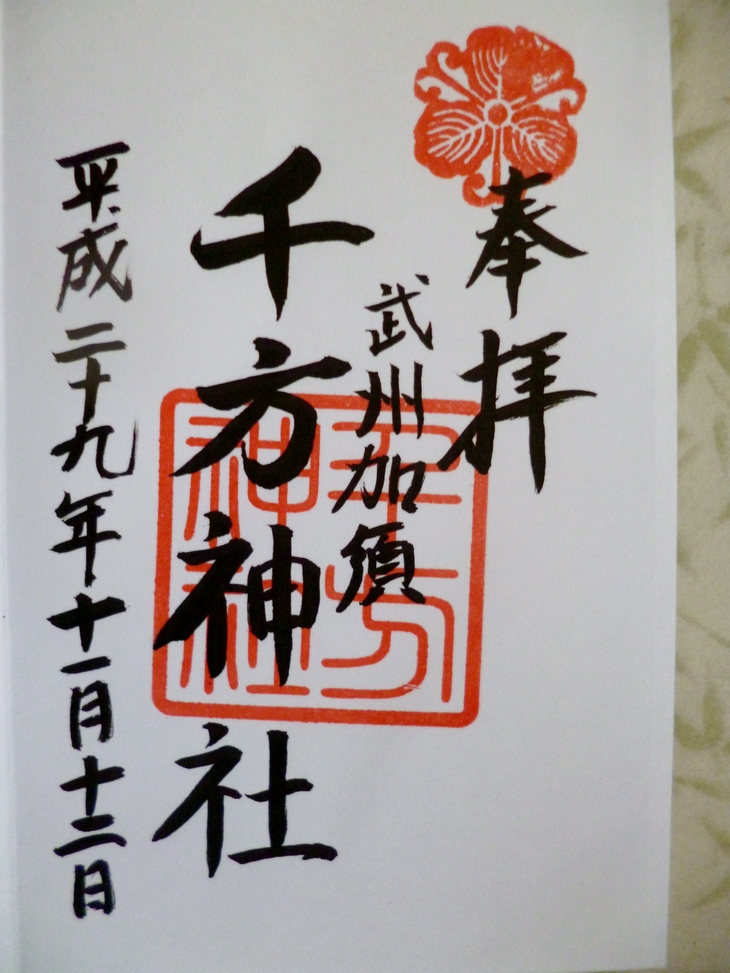 奉拝
武州加須
千方神社
千方神社
平成二十九年十一月十二日